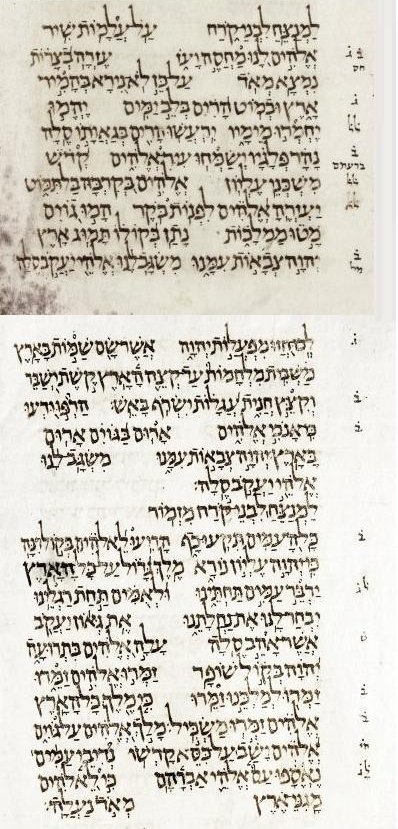 למנצח לבני קרח על עלמות שיר
אלהים לנו מחסה ועז עזרה בצרות
נמצא מאד על כן לא נירא בהמיר
ארץ ובמוט הרים בלב ימים יהמו
יחמרו מימיו ירעשו הרים בגאותו סלה
נהר פלגיו ישמחו עיר אלהים קדש
משכני עליון אלהים בקרבה בל תמוט
יעזרה אלהים לפנות בקר המו גוים
מטו ממלכות נתן בקולו תמוג ארץ
יהוה צבאות עמנו משגב לנו אלהי יעקב סלה
לכו חזו מפעלות יהוה אשר שם שמות בארץ
משבית מלחמות עד קצה הארץ קשת ישבר
וקצץ חנית עגלות ישרף באש הרפו ודעו
כי אנכי אלהים ארום בגוים ארום
בארץ יהוה צבאות עמנו משגב לנו
אלהי יעקב סלה
למנצח לבני קרח מזמור
כל העמים תקעו כף הריעו לאלהים בקול רנה
כי יהוה עליון נורא מלך גדול על כל הארץ
ידבר עמים תחתינו ולאמים תחת רגלינו
יבחר לנו את נחלתנו את גאון יעקב
אשר אהב סלה עלה אלהים בתרועה
יהוה בקול שופר זמרו אלהים זמרו
זמרו למלכנו זמרו כי מלך כל הארץ
אלהים זמרו משכיל מלך אלהים על גוים
אלהים ישב על כסא קדשו נדיבי עמים
נאספו עם אלהי אברהם כי לאלהים
מגני ארץ מאד נעלה